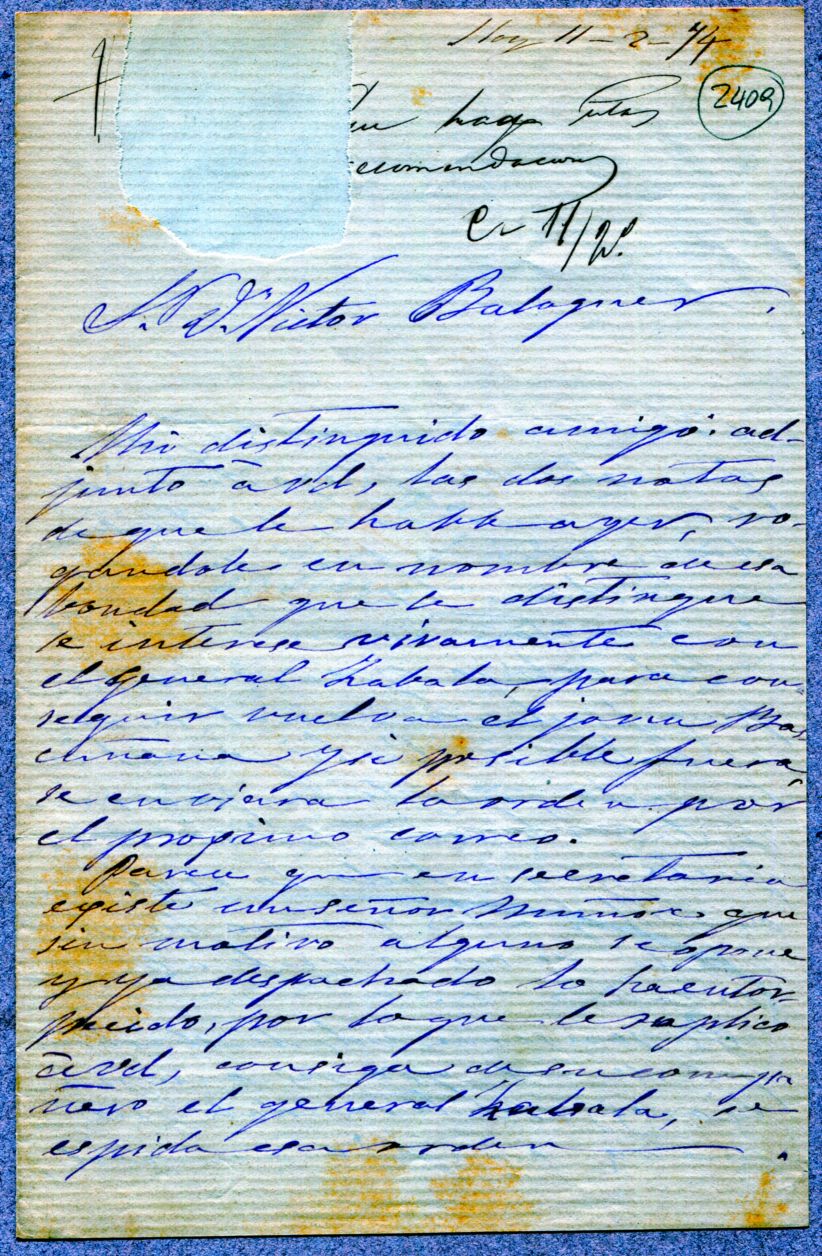 Hoy 11-2-74
2409
haga estas
ecomendacion
C. 11/2º
S. D. Victor Balaguer.
Mi distinguido amigo: ad-
junto á vd, las dos notas
de que le hablé ayer, ro-
gandole en nombre de esa
bondad que le distingue
se interese vivamente con
el general Zabala, para con-
seguir vuelva el joven Bas
cuñana y si posible fuera,
se enviara la orden por
el procsimo correo.
Parece que en secretaria
existe un señor Muñoz que
sin motivo alguno se opone
y ya despachado lo ha entor-
pecido, por lo que le suplico
á vd, consiga de su compa
ñero el general Zabala, se
espida esa orden.